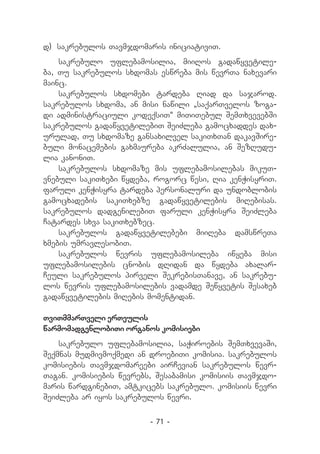 დ) საკრებულოს თავმჯდომარის ინიციატივით.
საკრებულო უფლებამოსილია, მიიღოს გადაწყვეტილე-
ბა, თუ საკრებულოს სხდომას ესწრება მის წევრთა ნახევარი
მაინც.
საკრებულოს სხდომები ტარდება ღიად და საჯაროდ.
საკრებულოს სხდომა, ან მისი ნაწილი „საქართველოს ზოგა-
დი ადმინისტრაციული კოდექსით“ მითითებულ შემთხვევებში
საკრებულოს გადაწყვეტილებით შეიძლება გამოცხადდეს დახ-
ურულად, თუ სხდომაზე განსახილველ საკითხთან დაკავშირე-
ბული მონაცემების გახმაურება აკრძალულია, ან შეზღუდუ-
ლია კანონით.
საკრებულოს სხდომაზე მის უფლებამოსილებას მიკუთ-
ვნებული საკითხები წყდება, როგორც წესი, ღია კენჭისყრით.
ფარული კენჭისყრა ტარდება პერსონალური და უნდობლობის
გამოცხადების საკითხებზე გადაწყვეტილების მიღებისას.
საკრებულოს დადგენილებით ფარული კენჭისყრა შეიძლება
ჩატარდეს სხვა საკითხებზეც.
საკრებულოს გადაწყვეტილებები მიიღება დამსწრეთა
ხმების უმრავლესობით.
საკრებულოს წევრის უფლებამოსილება იწყება მისი
უფლებამოსილების ცნობის დღიდან და წყდება ახალარ-
ჩეული საკრებულოს პირველი შეკრებისთანავე, ან საკრებუ-
ლოს წევრის უფლებამოსილების ვადამდე შეწყვეტის შესახებ
გადაწყვეტილების მიღების მომენტიდან.
თვითმმართველი ერთეულის
წარმომადგენლობითი ორგანოს კომისიები
საკრებულო უფლებამოსილია, საჭიროების შემთხვევაში,
შექმნას მუდმივმოქმედი ან დროებითი კომისია. საკრებულოს
კომისიების თავმჯდომარეები აირჩევიან საკრებულოს წევრ-
თაგან. კომისიების წევრებს, შესაბამისი კომისიის თავმჯდო-
მარის წარდგინებით, ამტკიცებს საკრებულო. კომისიის წევრი
შეიძლება არ იყოს საკრებულოს წევრი.
- 71 -